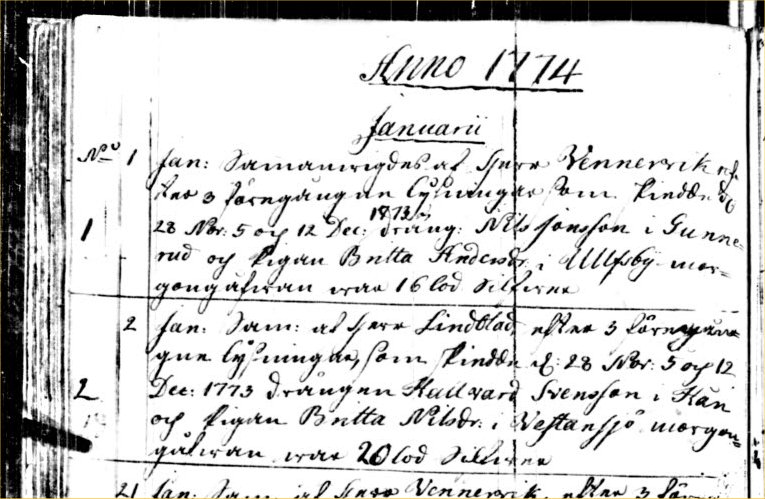 Anno 1774
Januarii
No 1 Jan: Samanwigdes af Herr Vennerwik ef-
ter 3 föregångne lysningar som skedde d:
1 28 Nov: 5 och 12 Dec: 1773 dräng: Nils Jonsson i Gunne-
rud och Pigan Britta Andersdr: i Ullfsby mor-
gongåfwan war 16 lod Silfwer
2 Jan: Sam: af Herr Lindblad efter 3 föregån-
gne lysningar, som skedde d: 28 Nov: 5 och 12
2 Dec: 1773 Drängen Hallvard Svensson i Han
och Pigan Britta Nilsdr: i Vestansjö morgon-
gåfwan war 20 lod Silfwer
21 Jan: Sam: af Herr Vennerwik, efter 3 före-